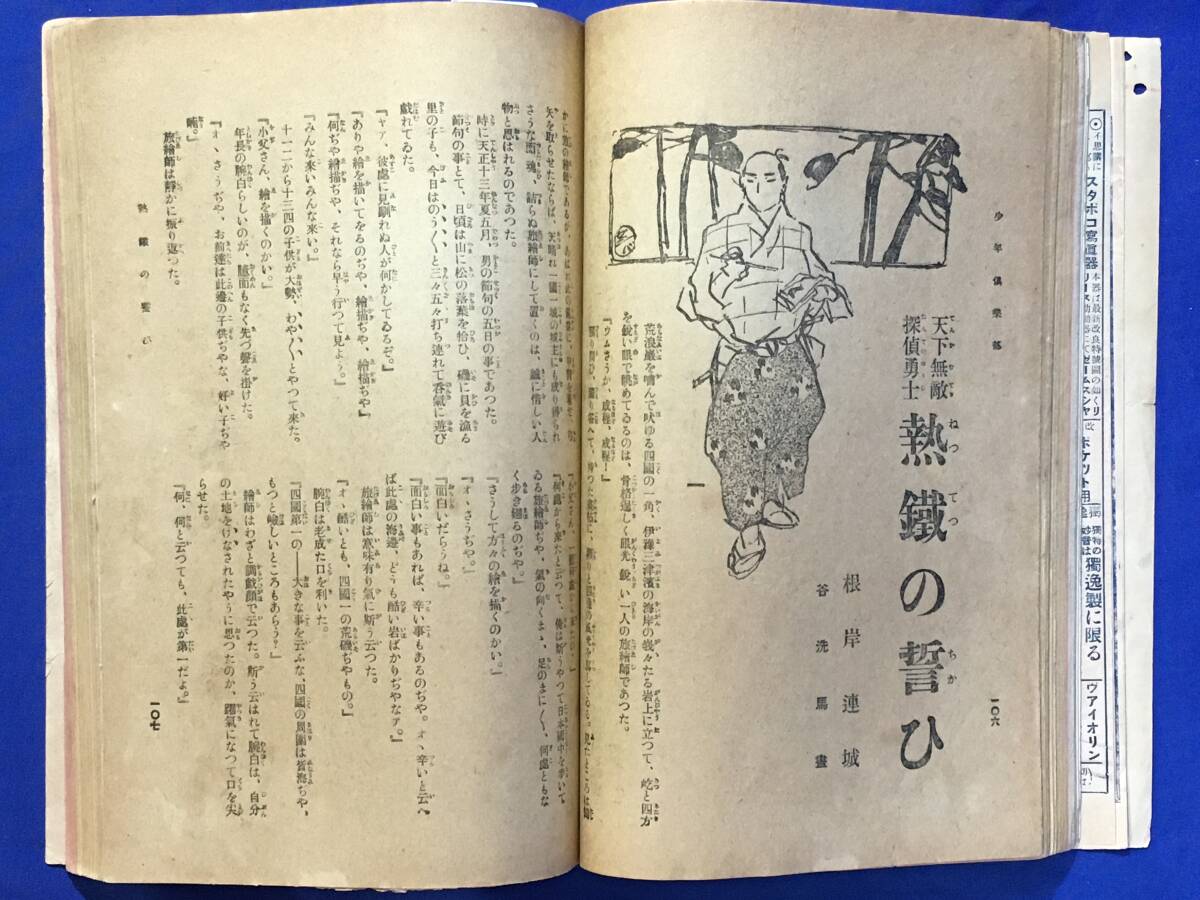 少年倶樂部
天下無敵
探偵勇士
熱鐵の誓ひ
根岸連城
谷洗馬畫
一
荒浪巖を嚙んで吠ゆる四國の一角、伊豫三津濱の海岸の峨々たる岩上に立つて、屹と四方
を鋭い眼で眺めてゐるのは、骨格逞しく眼光鋭い一人の旅繪師であつた。
『ウムさうか、成程、成程！』
一〇六
矢を取らせたならば、天晴れ一國一城の城主にも成り得られ
さうな面魂、詰らぬ旅繪師にして置くのは、誠に惜しい人
物と思はれるのであつた。
時に天正十三年夏五月、男の節句の五日の事であつた。
節句の事とて、日頃は山に松の落葉を拾ひ、磯に貝を漁る
里の子も、今日はのう〱と三々五々打ち連れて呑氣に遊び
戯れてゐた。
『ヤア、彼處に見馴れぬ人が何かしてゐるぞ。』
『ありや繪を描いてをるのぢや、繪描ぢや、繪描ぢや』
『何ぢや繪描ぢや、それなら早う行つて見よう。』
『みんな來いみんな來い。』
十一二から十三四の子供が大勢、わや〱とやつて來た。
『小父さん、繪を描くのかい。』
年長の腕白らしいのが、臆面もなく先づ聲を掛けた。
『オヽさうぢや、お前達は此邊の子供ぢやな、好い子ぢや
喃。』
旅繪師は靜かに振り返つた。
『何處から來たと云つて、俺は斯うやつて日本國中を歩いて
ゐる旅繪師ぢや、氣の向くまゝ、足のまに〱、何處ともな
く歩き廻るのぢや。』
『さうして方々の繪を描くのかい。』
『オヽさうぢや。』
『面白いだらうね。』
『面白い事もあれば、辛い事もあるのぢや。オヽ辛いと云へ
ば此處の海邊、どうも酷い岩ばかりぢやなア。』
旅繪師は意味有り氣に斯う云つた。
『オヽ酷いとも、四國一の荒磯ぢやもの。』
腕白は老成た口を利いた。
『四國第一の――大きな事を云ふな、四國の周圍は皆海ぢや、
もつと嶮しいところもあらう？』
繪師はわざと調戯顔で云つた。斯う云はれて腕白は、自分
の土地をけなされたやうに思つたのか、躍氣になつて口を尖
らせた。
『何、何と云つても、此處が第一だよ。』
熱鐵の誓ひ
一〇七
スタポコ寫眞器
ポケツト用
獨逸製に限る
ヴアイオリン